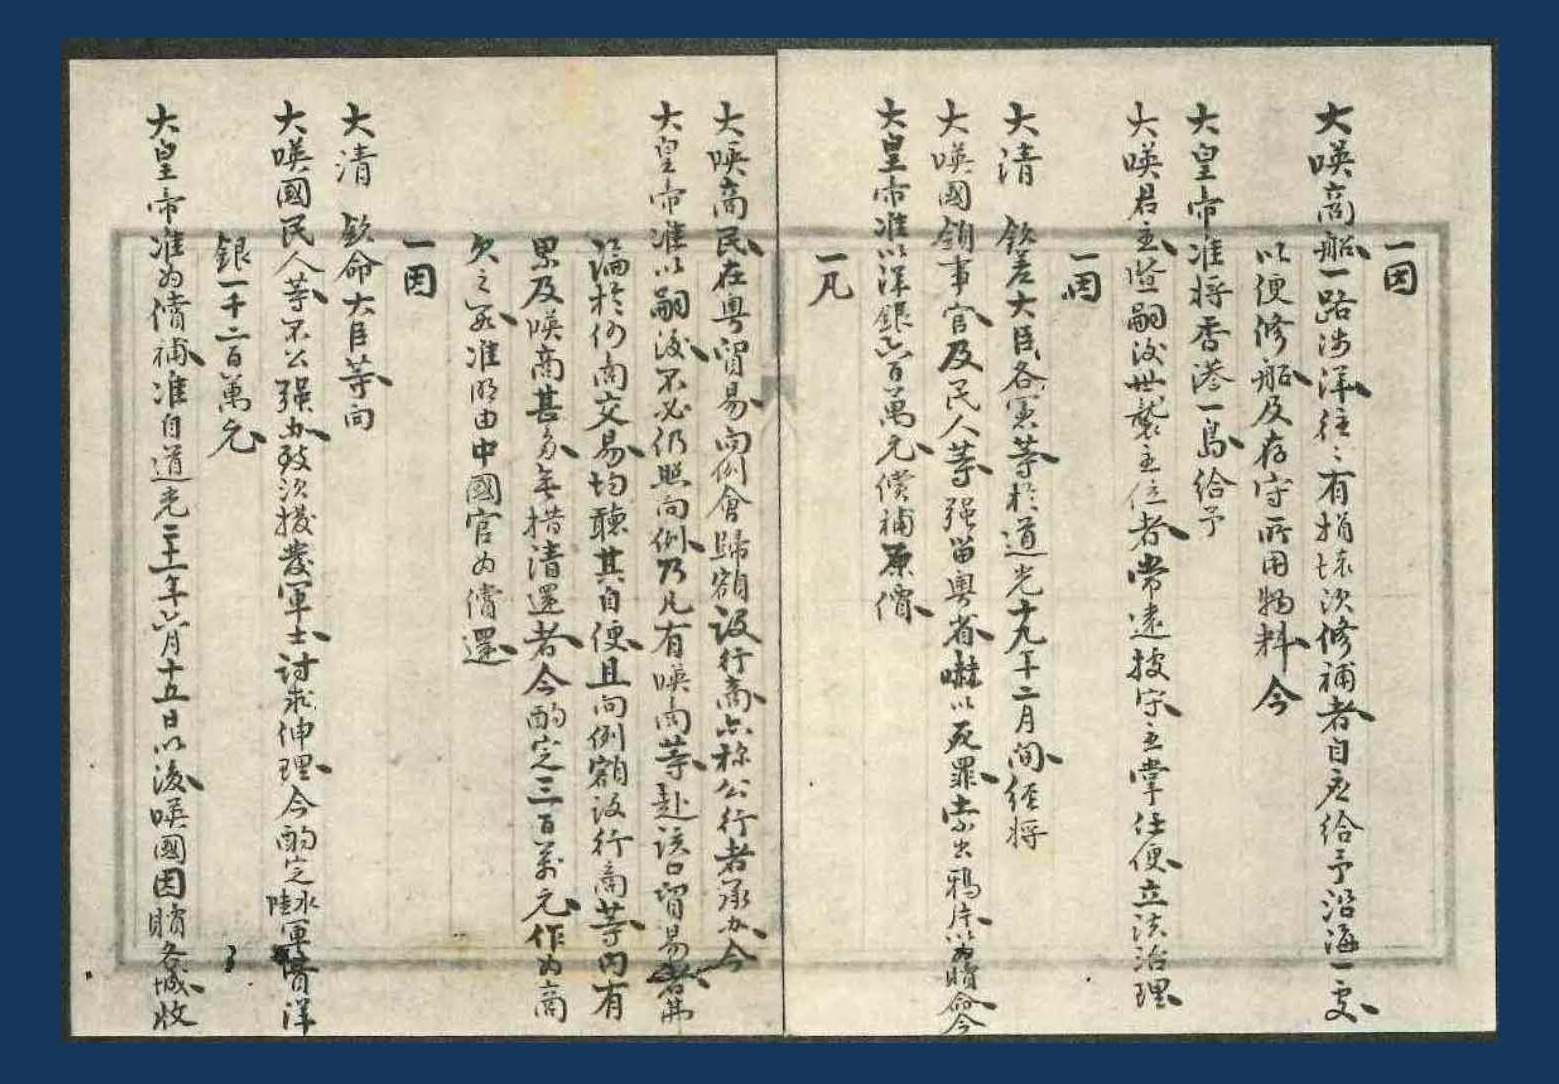 一因
大嘆商船一路涉洋往〻有損壞須修補者自應給予沿海一處
以便修船及存守所用物料今
大皇帝准將香港一島給予
大嘆君主暨嗣後世襲主位者常遠據守主掌任便立法治理
一因
大清　欽差大臣各憲等於道光十九年二月間經將
大嘆國領事官及民人等强留粵省嚇以死罪索出鴉片以為贖命今
大皇帝准以洋銀六百萬元償補原價
一凡
大嘆商民在粵貿易向例會歸額設行商亦稱公行者承办今
大皇帝准以嗣後不必仍照向例乃凡有嘆商等赴該口貿易者無
論於何商交易均聽其自便且向例額設行商等內有
累及嘆商甚多無措清還者今酌定三百萬元作為商
欠之數准明由中國官為償還
一因
大清　欽命大臣等向
大嘆國民人等不公强办致須撥發軍士討求伸理今酌定水陸軍費洋
銀一千二百萬元
大皇帝准為償補准自道光二十一年六月十五日以後嘆國因贖各城收